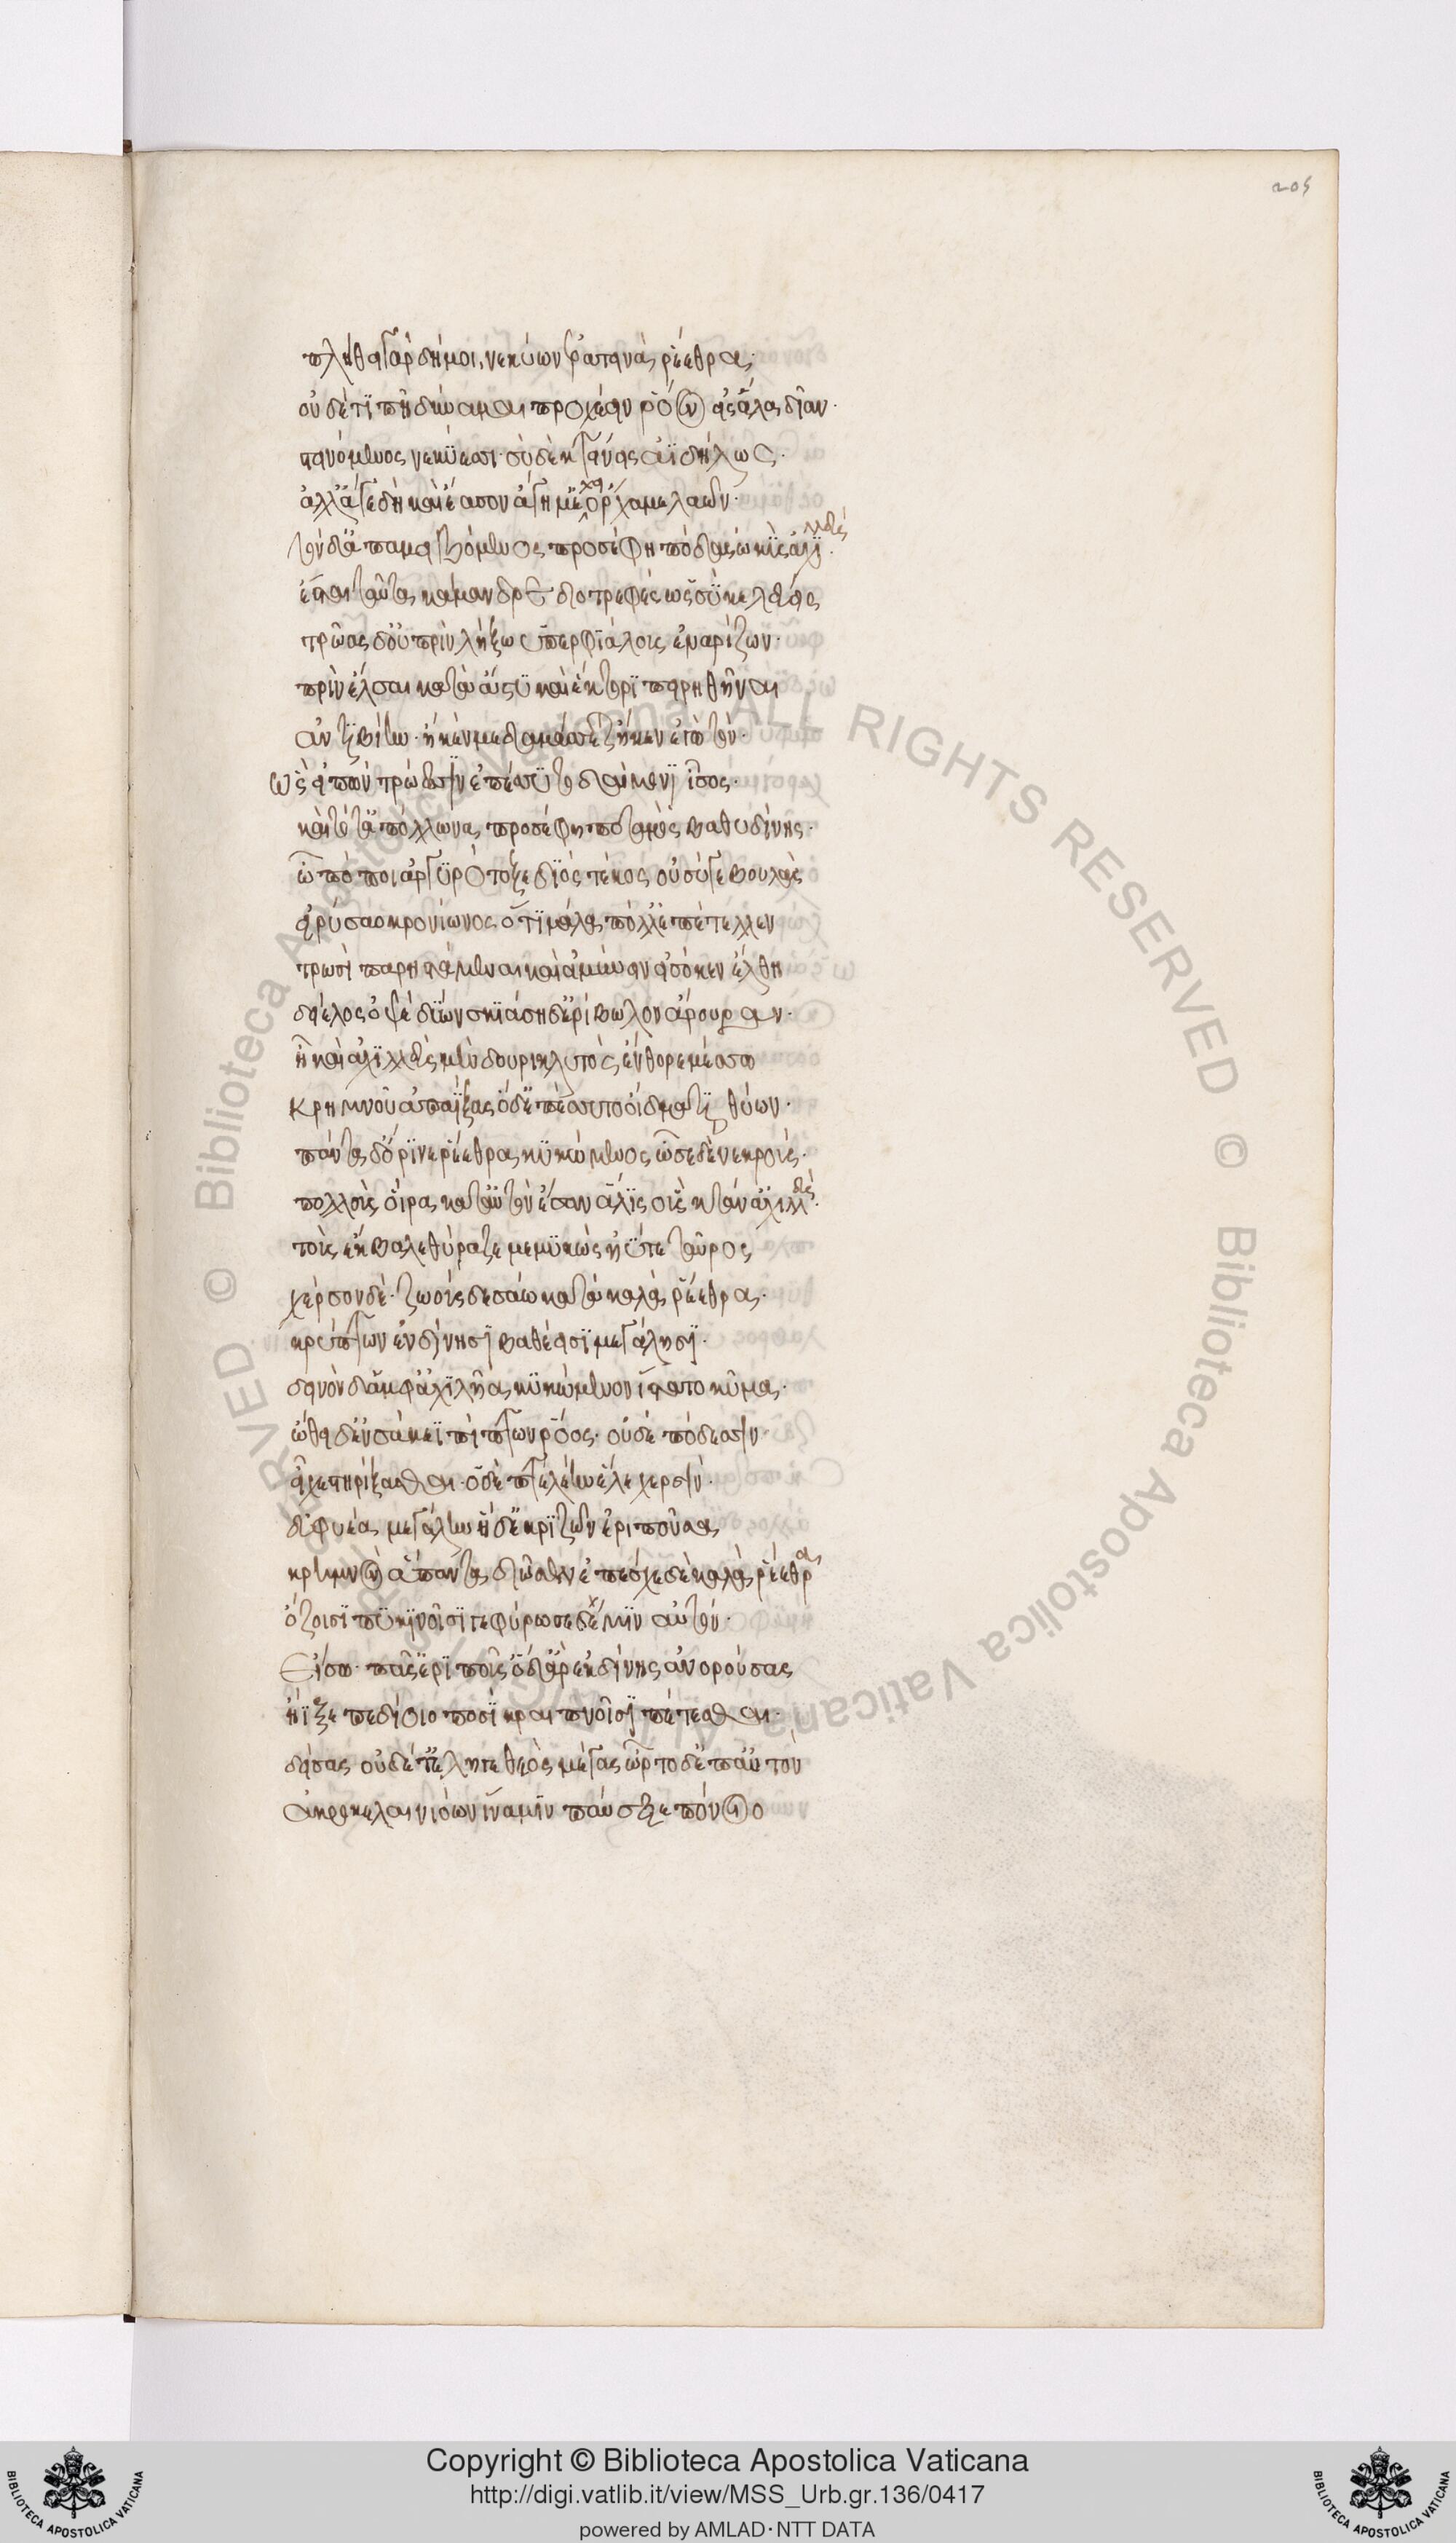 205
πλήθει γὰρ δή μοι νεκύων ἐρατεινὰ ῥέεθρα·
οὐδέ τί πη δύναμαι προχέειν ῥόον εἰς ἅλα δῖαν·
στεινόμενος νεκύεσσι· σὺ δὲ κτείνεις ἀϊδήλως·
ἀλλ' ἄγε δὴ καὶ ἔασον ἄγη μ' ἔχει ὄρχαμε λαῶν·
τὸν δ' ἀπαμειβόμενος προσέφη πόδας ὠκὺς ἀχιλλεύς·
ἔσται ταῦτα σκάμανδρε διοτρεφὲς ὡς σὺ κελεύεις
τρῶας δ' οὐ πρὶν λήξω ὑπερφιάλους ἐναρίζων·
πρὶν ἔλσαι κατὰ ἄστυ καὶ ἕκτορι πειρηθῆναι
ἀντιβίην· ἤ κέν με δαμάσσεται ἤ κεν ἐγὼ τόν·
ὣς εἰπὼν τρώεσσιν ἐπέσσυτο δαίμονι ἶσος·
καὶ τότ' ἀπόλλωνα προσέφη ποταμὸς βαθυδίνης·
ὢ πόποι ἀργυρότοξε διὸς τέκος οὐ σύ γε βουλὰς
εἰρύσαο κρονίωνος ὅ τοι μάλα πόλλ' ἐπέτελλεν
τρωσὶ παρεστάμεναι καὶ ἀμύνειν εἰσόκεν ἔλθη
δείελος ὀψὲ δύων σκιάση δ' ἐρίβωλον ἄρουραν·
ἦ καὶ ἀχιλλεὺς μὲν δουρικλυτὸς ἔνθορε μέσσω
κρημνοῦ ἀπαΐξας ὁ δ' ἐπέσσυτο οἴδματι θύων·
πάντα δ' ὄρινε ῥέεθρα κυκώμενος ὦσε δὲ νεκροὺς·
πολλοὺς οἵ ῥα κατ' αὐτὸν ἔσαν ἅλις οὓς κτάν' ἀχιλλεύς·
τοὺς ἔκβαλε θύραζε μεμυκὼς ἠΰτε ταῦρος
χέρσονδέ· ζωοὺς δὲ σάω κατὰ καλὰ ῥέεθρα·
κρύπτων ἐν δίνησι βαθείησι μεγάλησι·
δεινὸν δ' ἀμφ' ἀχιλῆα κυκώμενον ἵστατο κῦμα·
ὤθει δ' ἐν σάκεϊ πίπτων ῥόος· οὐδὲ πόδεσσιν
εἶχε στηρίξασθαι· ὃ δὲ πτελέην ἕλε χερσὶν·
εὐφυέα μεγάλην ἡ δ' ἐκ ῥιζῶν ἐριποῦσα
κρημνὸν ἅπαντα διῶσεν ἐπέσχε δὲ καλὰ ῥέεθρα
ὄζοισι πυκινοῖσι γεφύρωσε δέ μιν αὐτὸν·
εἴσω πᾶσ' ἐριποῦσ' ὁ δ' ἄρ' ἐκ δίνης ἀνορούσας
ἤϊξε πεδίοιο ποσὶ κραιπνοῖσι πέτεσθαι·
δείσας οὐδέ τ' ἔληγε θεὸς μέγας ὦρτο δ' ἐπ' αὐτὸν
ἀκροκελαινιόων ἵνα μιν παύσειε πόνοιο
Copyright © Biblioteca Apostolica Vaticana
http://digi.vatlib.it/view/MSS_Urb.gr.136/0417
powered by AMLAD·NTT DATA